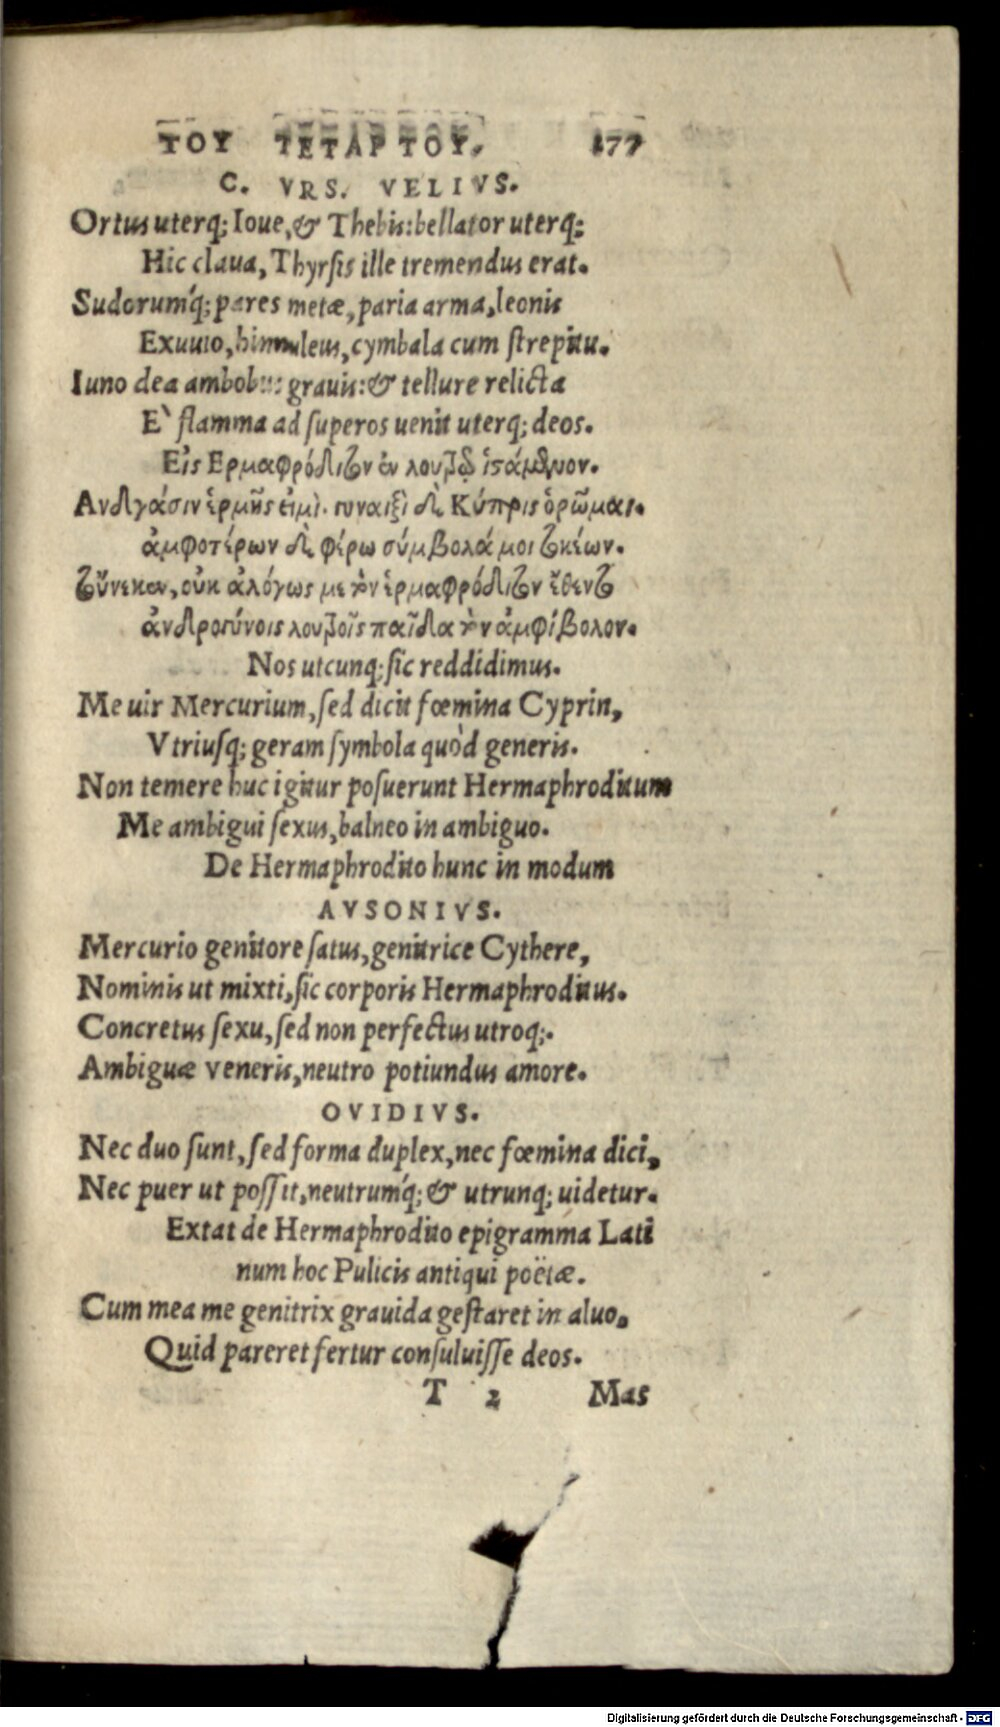 ΤΟΥ ΤΕΤΑΡΤΟΥ. 277
C. VRS. VELIVS.
Ortus uterq; Ioue, & Thebis: bellator uterq;
Hic claua, Thyrsis ille tremendus erat.
Sudorumq́; pares metæ, paria arma, leonis
Exuuio, hinnuleus, cymbala cum strepitu.
Iuno dea ambobus grauis: & tellure relicta
E` flamma ad superos uenit uterq; deos.
Εἰς Ερμαφρόδιτον ἐν λουτρῷ ἱστάμενον.
Ανδράσιν ἑρμῆς εἰμὶ. γυναιξὶ δὲ Κύπρις ὁρῶμαι.
ἀμφοτέρων δὲ φέρω σύμβολά μοι τοκέων.
τοὔνεκεν, οὐκ ἀλόγως με τὸν ἑρμαφρόδιτον ἔθεντο
ἀνδρογύνοις λουτροῖς παῖδα τὸν ἀμφίβολον.
Nos utcunq; sic reddidimus.
Me uir Mercurium, sed dicit fœmina Cyprin,
Vtriusq; geram symbola quòd generis.
Non temere huc igitur posuerunt Hermaphroditum
Me ambigui sexus, balneo in ambiguo.
De Hermaphrodito hunc in modum
AVSONIVS.
Mercurio genitore satus, genitrice Cythere,
Nominis ut mixti, sic corporis Hermaphroditus.
Concretus sexu, sed non perfectus utroq;.
Ambiguæ veneris, neutro potiundus amore.
OVIDIVS.
Nec duo sunt, sed forma duplex, nec fœmina dici,
Nec puer ut possit, neutrumq́; & utrunq; uidetur.
Extat de Hermaphrodito epigramma Lati
num hoc Pulicis antiqui poëtæ.
Cum mea me genitrix grauida gestaret in aluo.
Quid pareret fertur consuluisse deos.
T 2 Mas
Digitalisierung gefördert durch die Deutsche Forschungsgemeinschaft - DFG